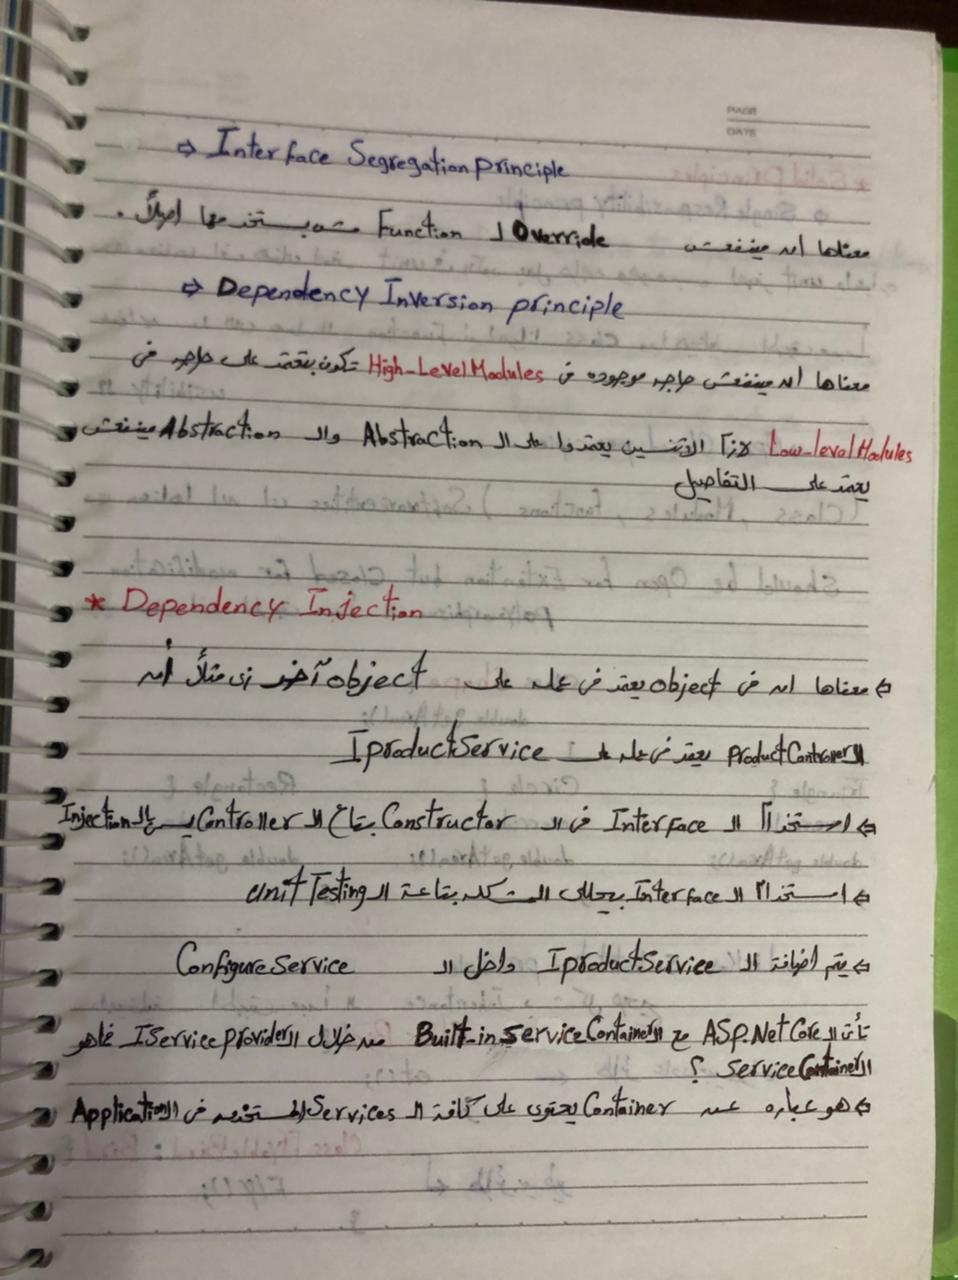 PAGE
DATE
⇨ Interface Segregation principle
معناها انه مينفعش Override لـ Function مش بيستخدمها اصلاً.
⇨ Dependency Inversion principle
معناها انه مينفعش حاجه موجوده في High-Level Modules تكون بتعتمد على حاجه في
Low-level Modules لازم الاتنين يعتمدوا على الـ Abstraction والـ Abstraction مينفعش
يعتمد على التفاصيل
* Dependency Injection
⇦ معناها انه في object يعتمد في عمله على object آخر زي مثلاً أنه
الـ productController يعتمد في عمله على IproductService
⇦ استخدام الـ Interface في الـ Constructor بتاع الـ Controller يسمى بالـ Injection
⇦ استخدام الـ Interface بيحللى المشكله بتاعة الـ Unit Testing
⇦ يتم اضافة الـ IproductService داخل الـ ConfigureService
تأتى الـ ASP.Net Core مع الـ Built-in service Container من خلال الـ IServiceprovider فاهو
الـ service Container ؟
⇦ هو عباره عن Container يحتوى على كافة الـ Services المستخدمه في الـ Application